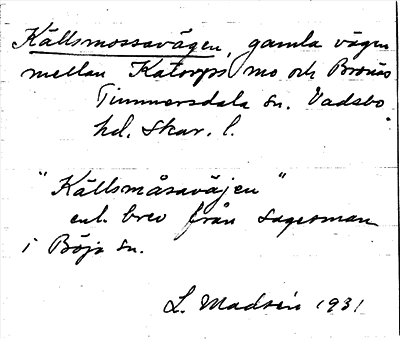 Källsmossavägen, gamla vägen
mellan Katorps mo och Bronäs
Timmersdala sn. Vadsbo
hd. Skar. l.
"Källsmåsaväjen"
enl. brev från sagesman
i Böja sn.
L. Madsén 1931